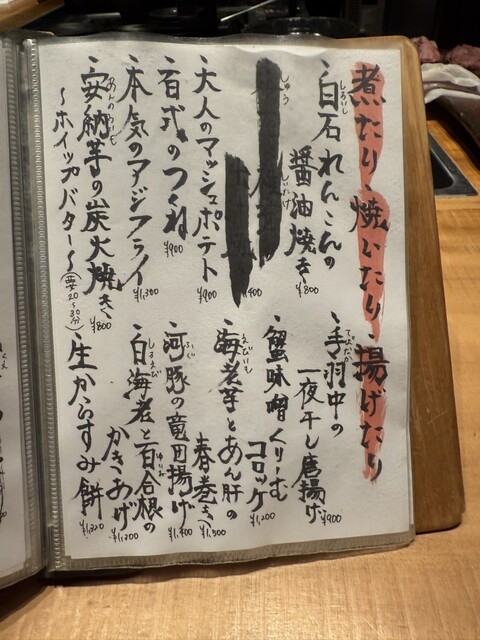 煮たり、焼いたり、揚げたり
・白石れんこんの
しろいし
醤油焼き ¥800
しゅう
しいたけ
400
・大人のマッシュポテト ¥900
・石式のつくね ¥900
・本気のアジフライ ¥1,300
・安納芋の炭火焼き ¥800
あんのういも
〜ホイップバター〜(要20~30分)
・手羽中の
てばなか
一夜干し唐揚げ ¥900
・蟹味噌くりーむ
コロッケ ¥1,200
・海老芋とあん肝の
えびいも
春巻き ¥1,500
・河豚の竜田揚げ ¥1,400
ふぐ
・白海老と百合根の
しろえび
ゆりね
かきあげ ¥1,200
・生からすみ餅 ¥1,320